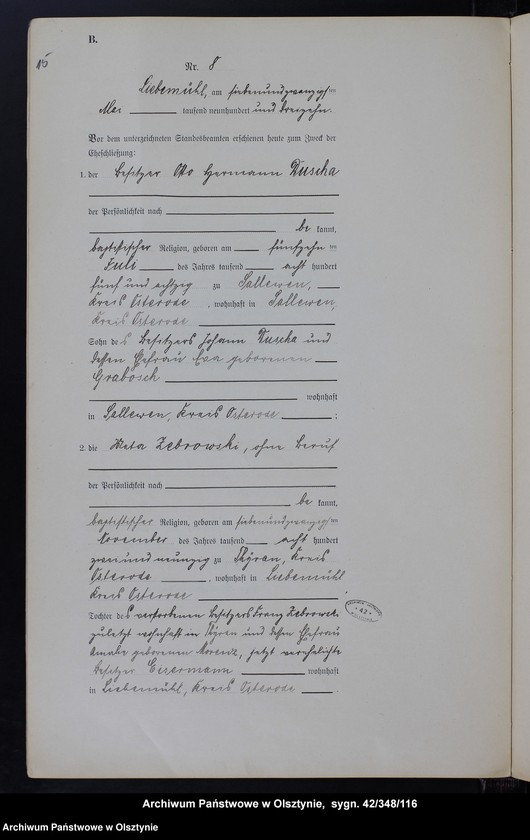 B.
15
Nr. 8
Liebemühl, am siebenundzwanzigsten
Mai tausend neunhundert und dreizehn.
Vor dem unterzeichneten Standesbeamten erschienen heute zum Zweck der
Eheschließung:
1. der Besitzer Otto Hermann Kuscha
der Persönlichkeit nach
be kannt,
baptistischer Religion, geboren am fünfzehnten
Juli des Jahres tausend acht hundert
fünf und achtzig zu Sallewen,
Kreis Osterode, wohnhaft in Sallewen,
Kreis Osterode
Sohn des Besitzers Johann Kuscha und
dessen Ehefrau Eva geborenen
Grabosch
wohnhaft
in Sallewen, Kreis Osterode;
2. die Meta Zebrowski, ohne Beruf
der Persönlichkeit nach
be kannt,
baptistischer Religion, geboren am siebenundzwanzigsten
November des Jahres tausend acht hundert
zwei und neunzig zu Thyrau, Kreis
Osterode, wohnhaft in Liebemühl
Kreis Osterode
Tochter des verstorbenen Besitzers Franz Zebrowski
zuletzt wohnhaft in und dessen Ehefrau
Amalie geborenen Lorenz, jetzt verehelichte
Besitzer Eisermann wohnhaft
in Liebemühl, Kreis Osterode
* 42 *
Archiwum Państwowe w Olsztynie, sygn. 42/348/116
Archiwum Państwowe w Olsztynie